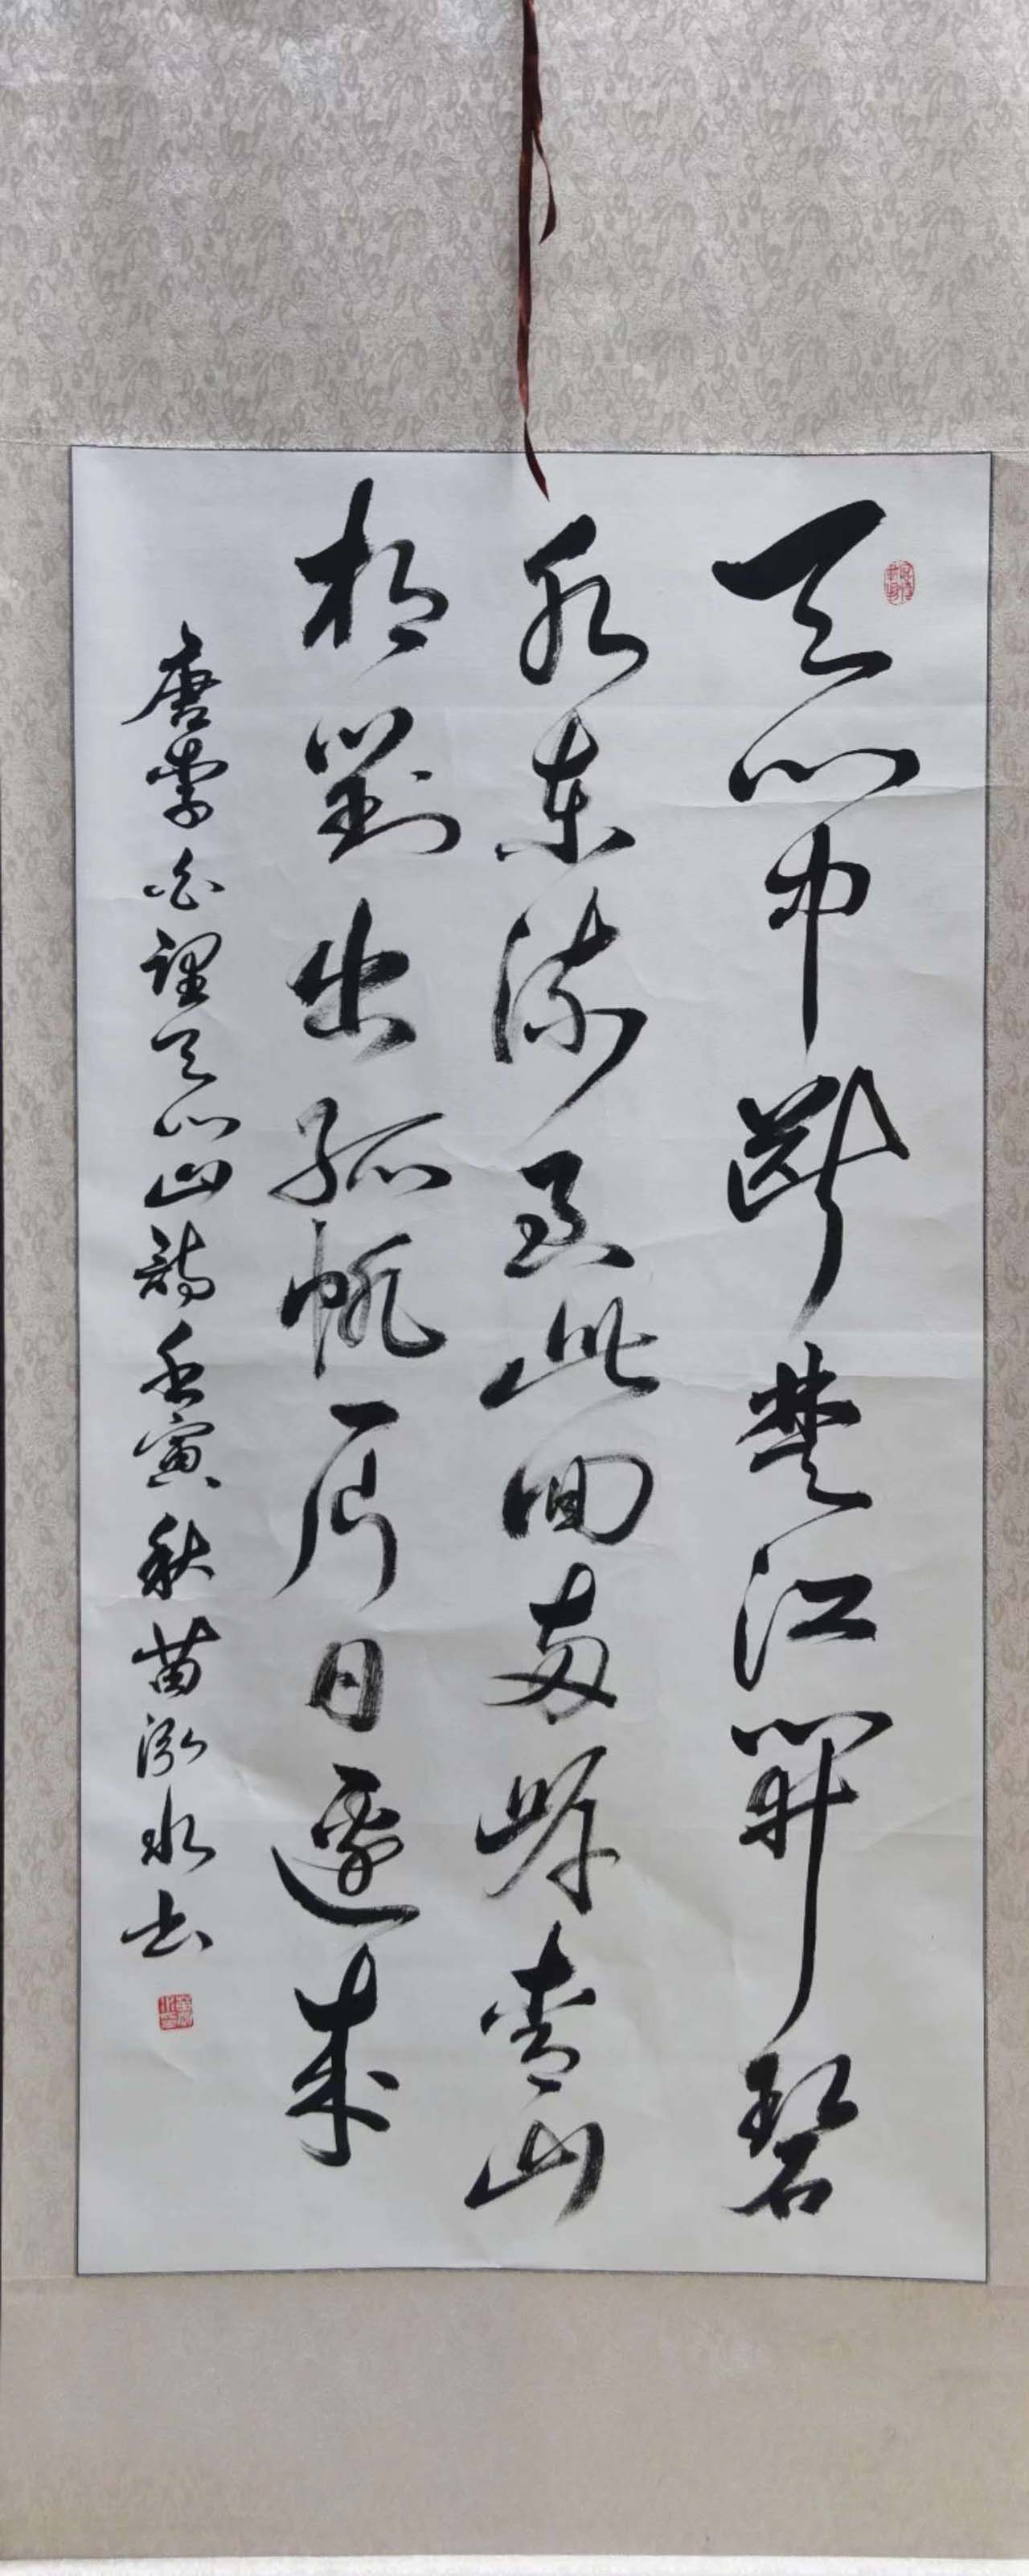 天门中断楚江開碧
水東流至此回兩岸青山
相對出孤帆一片日邊來
唐李白望天门山詩壬寅秋苗泓水书